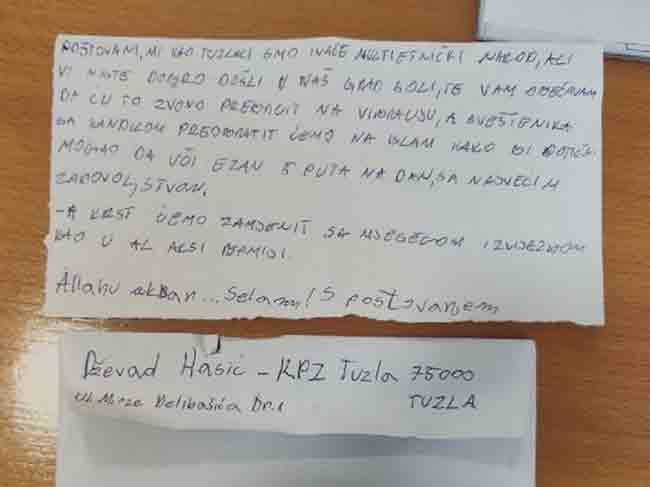 POŠTOVANI, MI KAO TUZLACI SMO INAČE MULTIETNIČKI NAROD, ALI
VI NISTE DOBRO DOŠLI U NAŠ GRAD SOLI, TE VAM OBEĆAVAM
DA ĆU TO ZVONO PREBACIT NA VIBRACIJU, A SVEŠTENIKA
SA KANDILOM PREOBRATIT ĆEMO NA ISLAM KAKO BI
MOGAO DA UČI EZAN 5 PUTA NA DAN, SA NAJVEĆIM
ZADOVOLJSTVOM.
-A KRST ĆEMO ZAMJENIT SA MJESECOM I ZVIJEZDOM
KAO U AL AKSI DŽAMIJI.
Allahu akbar... Selam! S poštovanjem
Dževad Hasić - KPZ Tuzla 75000
Ul. Mirze Delibašića Br. 1 TUZLA